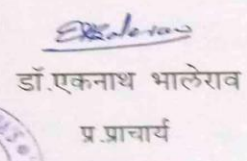 डॉ.एकनाथ भालेराव
प्र.प्राचार्य